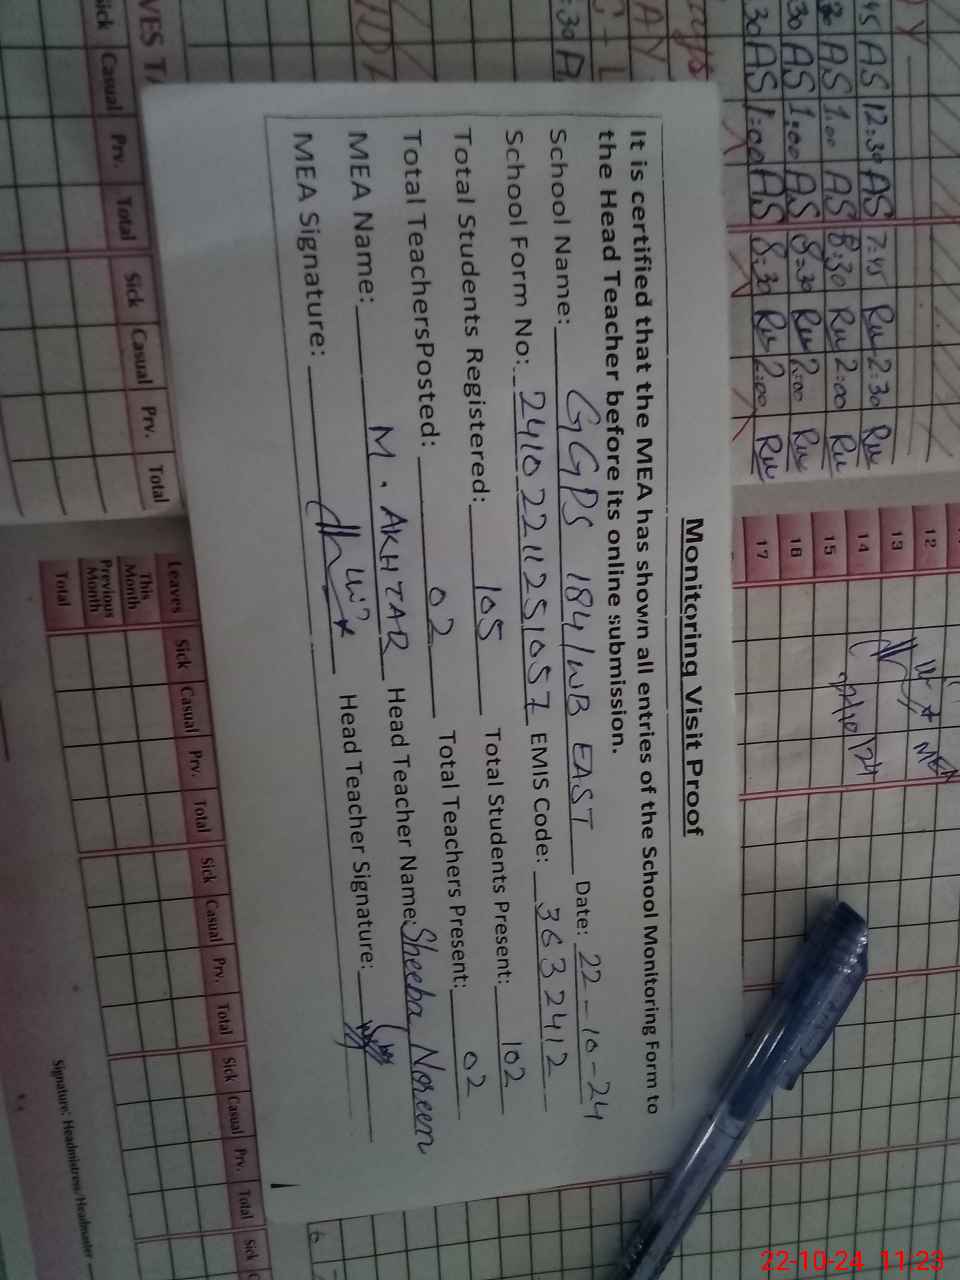 Monitoring Visit Proof
It is certified that the MEA has shown all entries of the School Monitoring Form to
the Head Teacher before its online submission.
School Name: GGPS 184/WB EAST Date: 22-10-24
School Form No: 24102211251057 EMIS Code: 3632412
Total Students Registered: 105 Total Students Present: 102
Total TeachersPosted: 02 Total Teachers Present: 02
MEA Name: M. AKHTAR Head Teacher Name: Sheeba Noreen
MEA Signature: Head Teacher Signature:
45 AS 12:30 AS 7:45 Ru 2:30 Ru
AS 1:00 AS 8:30 Ru 2:00 Ru
30 AS 1:00 AS 8:30 Ru 2:00 Ru
30 AS 1:00 AS 8:30 Ru 2:00 Ru
12
13
14
15
16
17
MEA
22/10/24
:30 A
VES
Sick Casual Prv. Total Sick Casual Prv. Total
Leaves Sick Casual Prv. Total Sick Casual Prv. Total Sick Casual Prv. Total Sick
This Month
Previous Month
Total
Signature: Headmistress/Headmaster
22-10-24 11:23